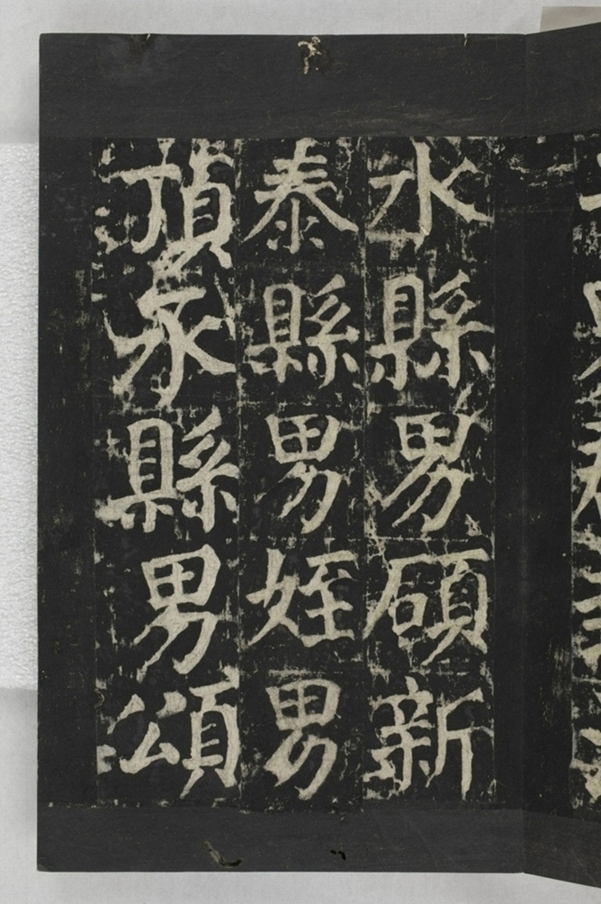 水縣男碩新
泰縣男姪男
頂承縣男頌